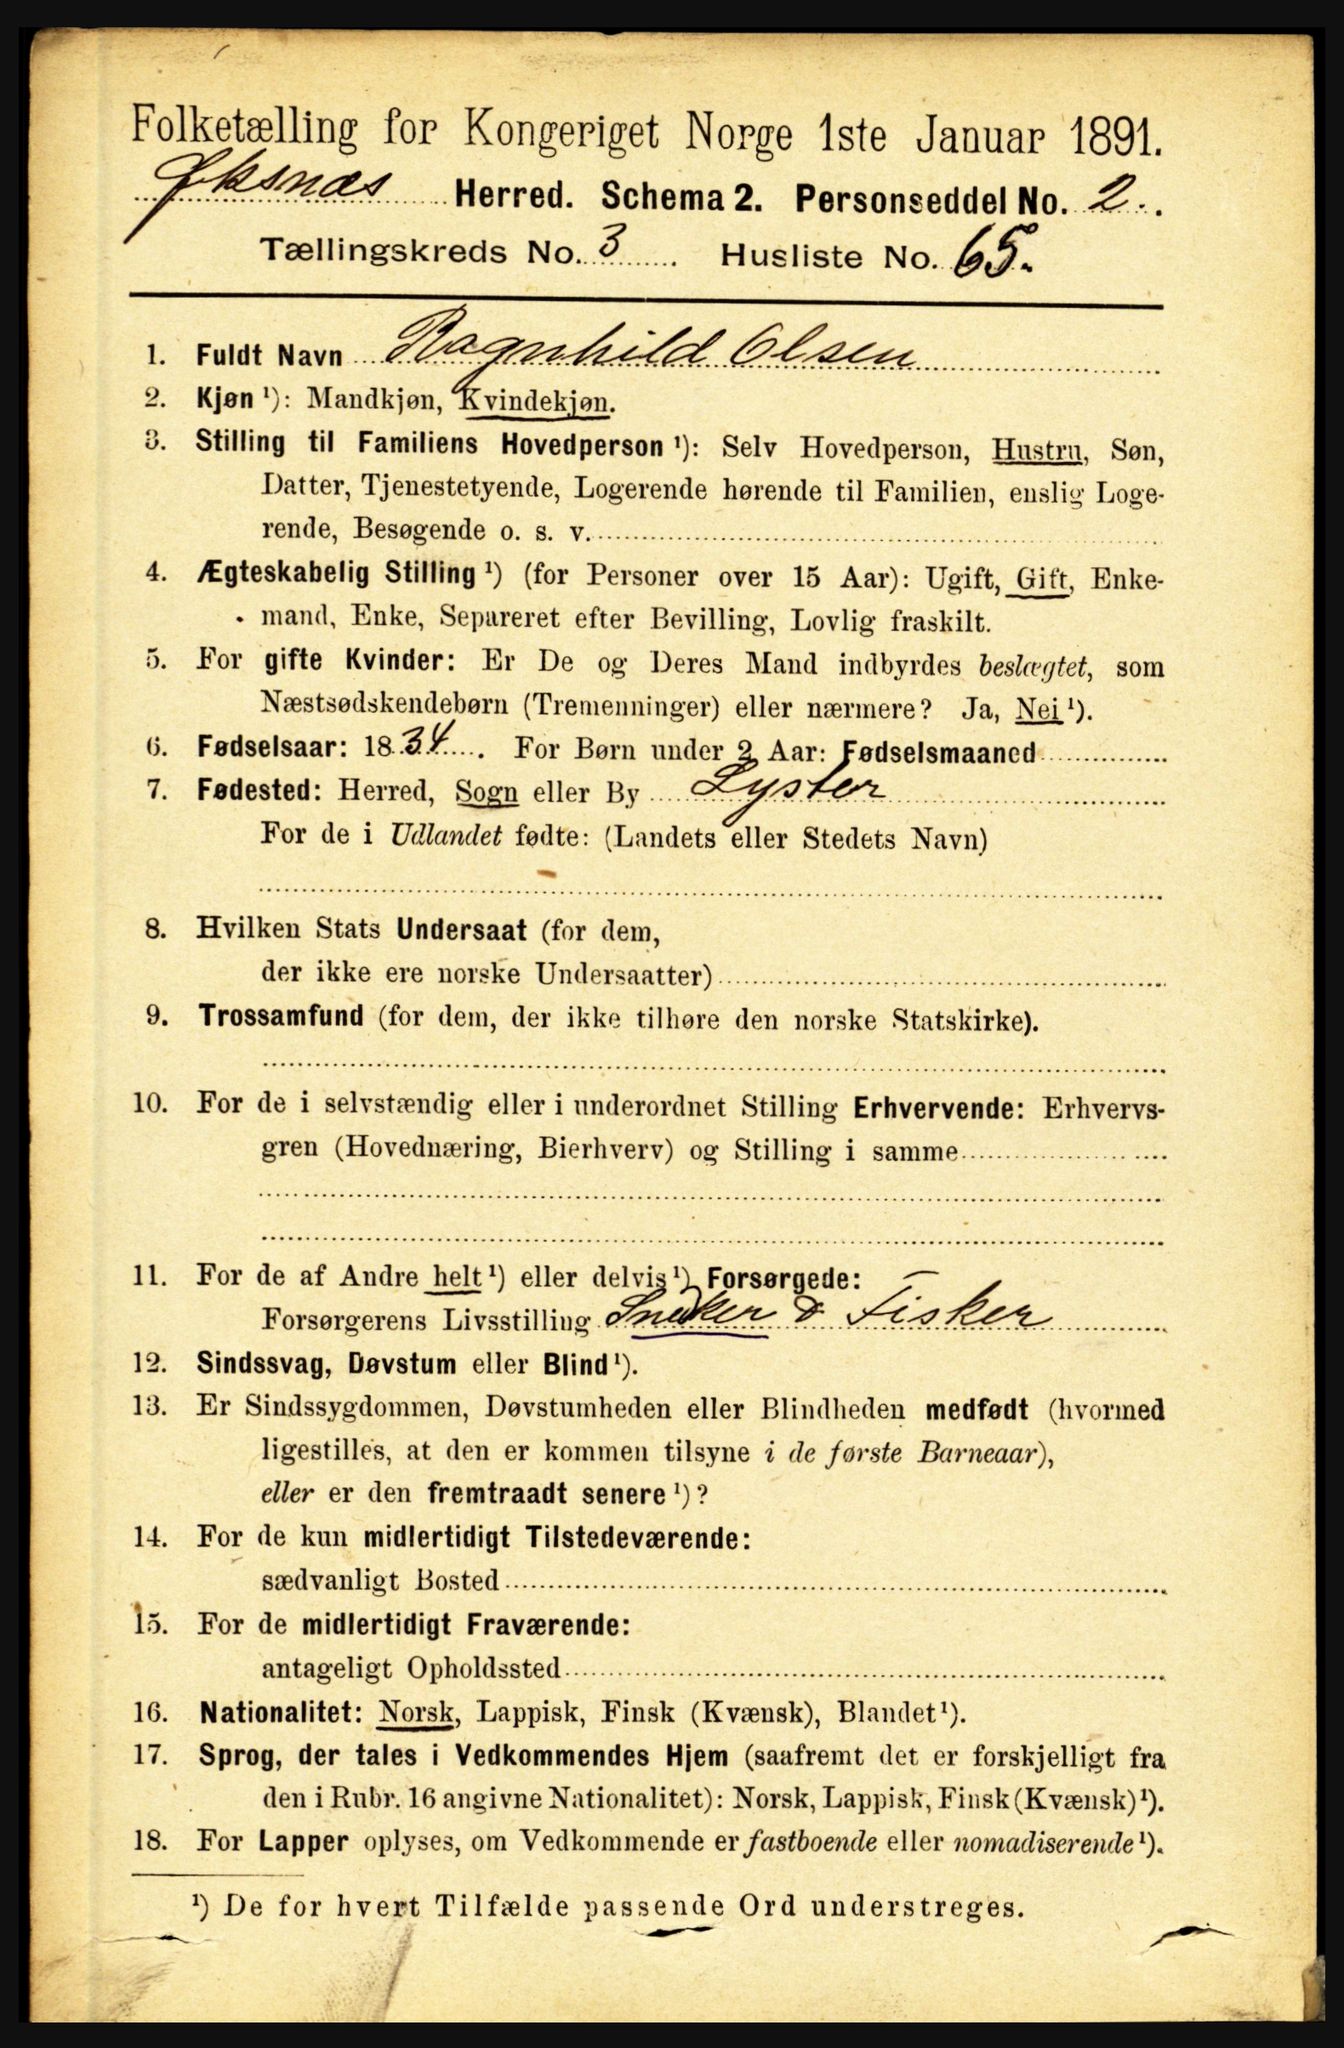 Folketælling for Kongeriget Norge 1ste Januar 1891.
Øksnæs Herred. Schema 2. Personseddel No. 2.
Tællingskreds No. 3. Husliste No. 65.
1. Fuldt Navn Ragnhild Olsen
2. Kjøn ¹): Mandkjøn, Kvindekjøn.
3. Stilling til Familiens Hovedperson ¹): Selv Hovedperson, Hustru, Søn,
Datter, Tjenestetyende, Logerende hørende til Familien, enslig Loge-
rende, Besøgende o. s. v.
4. Ægteskabelig Stilling ¹) (for Personer over 15 Aar): Ugift, Gift, Enke-
mand, Enke, Separeret efter Bevilling, Lovlig fraskilt.
5. For gifte Kvinder: Er De og Deres Mand indbyrdes beslægtet, som
Næstsødskendebørn (Tremenninger) eller nærmere? Ja, Nei ¹).
6. Fødselsaar: 1834. For Børn under 2 Aar: Fødselsmaaned
7. Fødested: Herred, Sogn eller By Lyster
For de i Udlandet fødte: (Landets eller Stedets Navn)
8. Hvilken Stats Undersaat (for dem,
der ikke ere norske Undersaatter)
9. Trossamfund (for dem, der ikke tilhøre den norske Statskirke).
10. For de i selvstændig eller i underordnet Stilling Erhvervende: Erhvervs-
gren (Hovednæring, Bierhverv) og Stilling i samme
11. For de af Andre helt ¹) eller delvis ¹) Forsørgede:
Forsørgerens Livsstilling Snedker & Fisker
12. Sindssvag, Døvstum eller Blind ¹).
13. Er Sindssygdommen, Døvstumheden eller Blindheden medfødt (hvormed
ligestilles, at den er kommen tilsyne i de første Barneaar),
eller er den fremtraadt senere ¹)?
14. For de kun midlertidigt Tilstedeværende:
sædvanligt Bosted
15. For de midlertidigt Fraværende:
antageligt Opholdssted
16. Nationalitet: Norsk, Lappisk, Finsk (Kvænsk), Blandet ¹).
17. Sprog, der tales i Vedkommendes Hjem (saafremt det er forskjelligt fra
den i Rubr. 16 angivne Nationalitet): Norsk, Lappisk, Finsk (Kvænsk) ¹).
18. For Lapper oplyses, om Vedkommende er fastboende eller nomadiserende ¹).
¹) De for hvert Tilfælde passende Ord understreges.